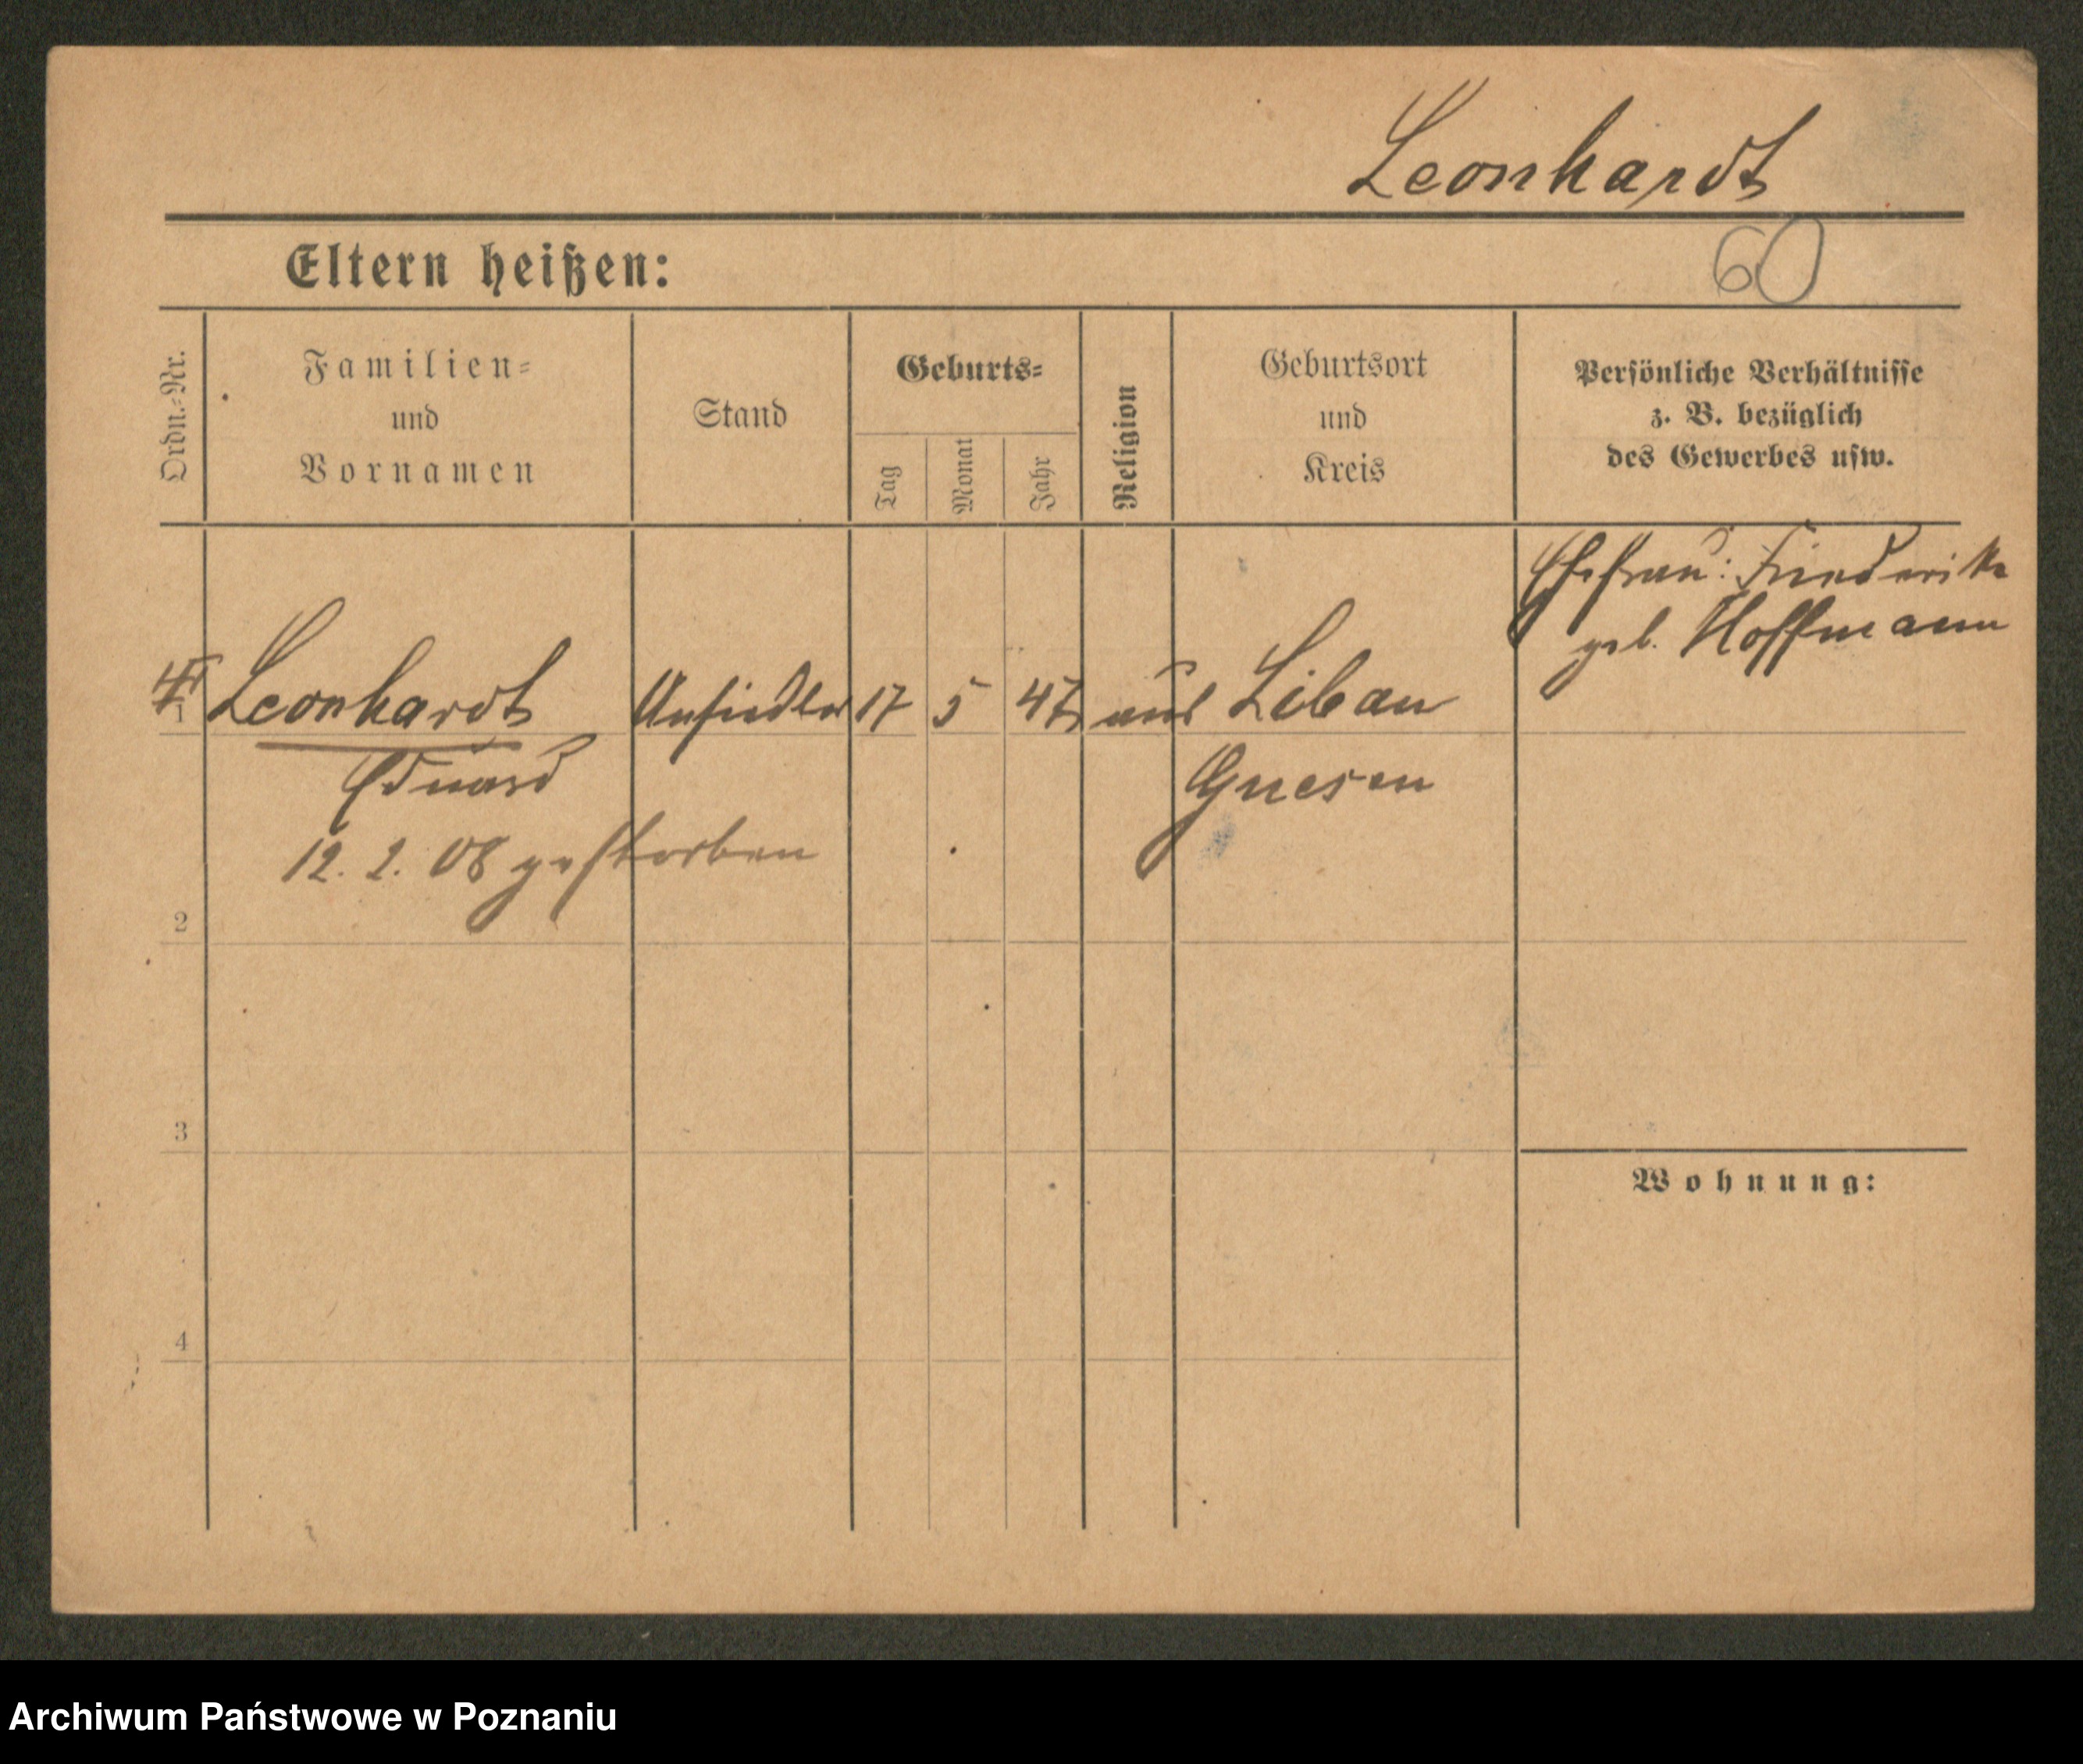 Leonhardt
Eltern heißen:
60
Ordn.-Nr.
Familien-
und
Vornamen
Stand
Geburts-
Tag
Monat
Jahr
Religion
Geburtsort
und
Kreis
Persönliche Verhältnisse
z. B. bezüglich
des Gewerbes usw.
Ehefrau: Friederike
geb. Hoffmann
1 Leonhardt Ansiedler 17 5 47 aus Libau
Eduard Gnesen
12. 2. 08 gestorben
2
3
Wohnung:
4
Archiwum Państwowe w Poznaniu